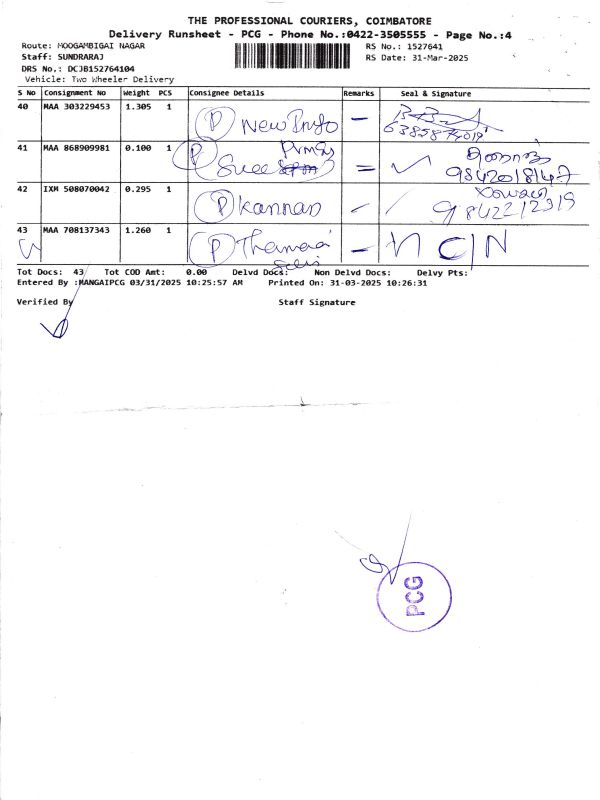 THE PROFESSIONAL COURIERS, COIMBATORE
Delivery Runsheet - PCG - Phone No.:0422-3505555 - Page No.:4
Route: MOOGAMBIGAI NAGAR
RS No.: 1527641
Staff: SUNDRARAJ
RS Date: 31-Mar-2025
DRS No.: DCJB152764104
Vehicle: Two Wheeler Delivery
S No Consignment No Weight PCS Consignee Details Remarks Seal & Signature
40 MAA 303229453 1.305 1 (P) New Info -
41 MAA 868909981 0.100 1 (P) Sree = 9842018147
42 IXM 508070042 0.295 1 (P) Kannan 9842212319
43 MAA 708137343 1.260 1 (P) - N C/N
Tot Docs: 43 Tot COD Amt: 0.00 Delvd Docs: Non Delvd Docs: Delvy Pts:
Entered By :MANGAIPCG 03/31/2025 10:25:57 AM Printed On: 31-03-2025 10:26:31
Verified By Staff Signature
PCG